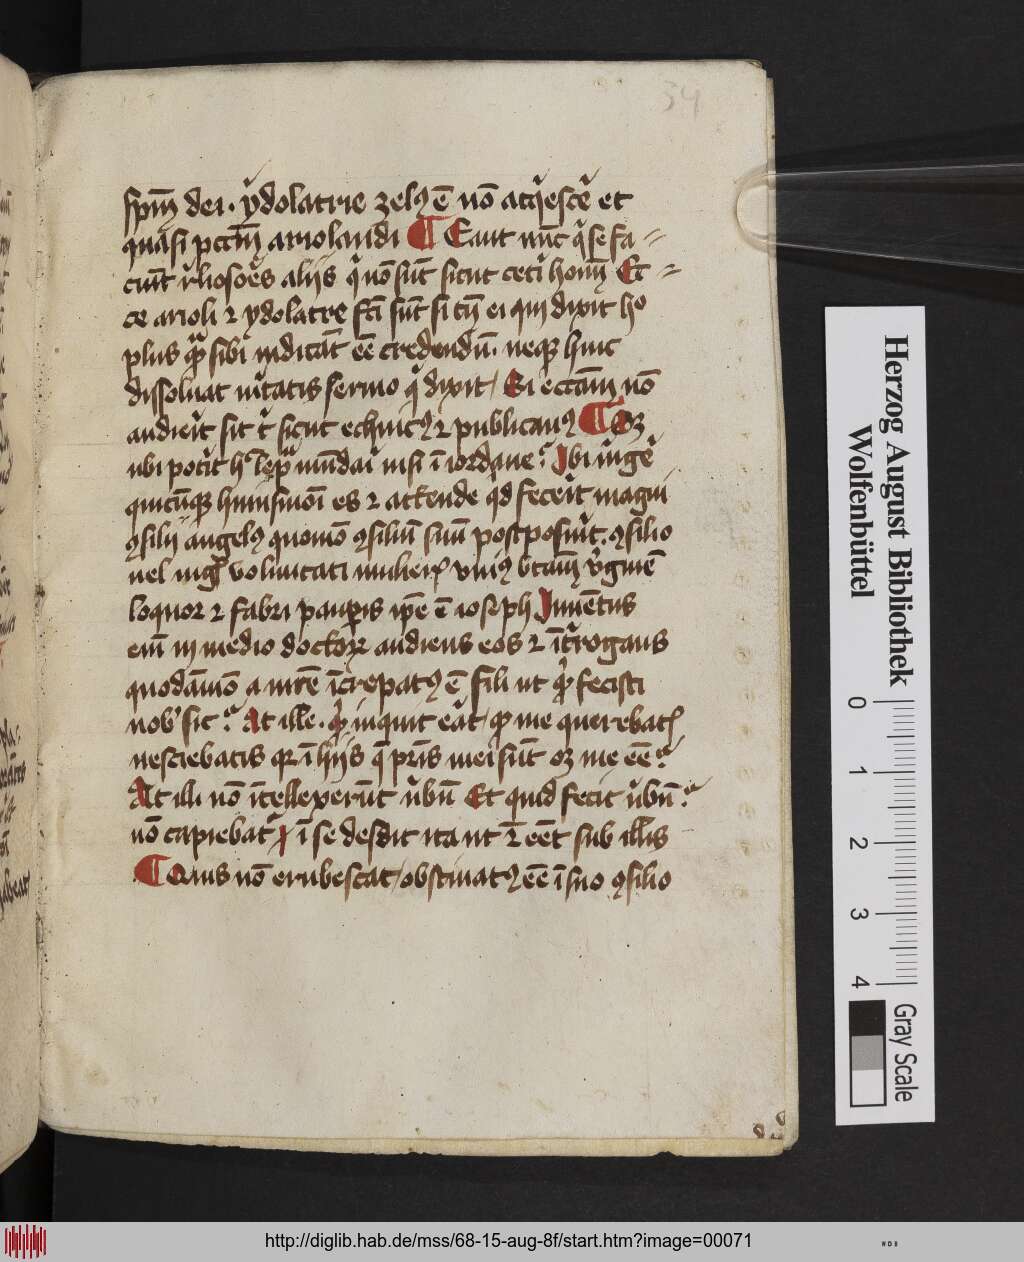 34
spm̄ dei · ydolatrie zelꝰ ē nō acq̇escē et
quasi pcctm̄ ariolandi ¶ Eant nūc q̇ se fa
ciūt r̓liosoēs aliis q̇ nō sūt sicut cet̓i hom̄ Ec
ce arioli ⁊ ydolatre fc̄i sūt si cū ei qui dixit ho
plus qᷓ sibi iudicāt eē credendū · neqꝫ huic
dissoluat u̓itatis sermo q̇ dixit / Si eccām nō
audier̄it sit t̓ sicut ethnicꝰ ⁊ publicanꝰ ¶ Oꝫ
ubi pot̓it h̓ lepᷓ mūdari nisi ī iordane ? Ibi iūgē
quicūqꝫ huiusmōi es ⁊ attende qd̓ fecerīt magni
ꝯsilii angelꝰ quomō ꝯsiliū suū postposuīt · ꝯsilio
uel mgᷓ voluntati mulieris vniꝰ btām v̓ginē
loquor ⁊ fabri paupis ipē ē ioseph Inuētus
eni͂ in medio doctoꝝ audiens eos ⁊ īt̓rogans
quodāmō a mr̄e īcrepatꝰ ē fili ut qͥd fecisti
nob̓ sic ? At ille · qͥd inquit eāt · qͥd me querebatꝭ
nesciebatis qꝛ ī hiis q̄ pr̄is mei sūt oꝫ me eē ?
At illi nō ītellexerūt u̓bū Et quid fecit u̓bū ?
nō capiebatr̓ ⁊ ī se descdit ita ut ⁊ eēt sub illis
¶ Quis nō erubescat / obstinatꝰ eē ī suo ꝯsilio
Herzog August Bibliothek
Wolfenbüttel
0 1 2 3 4
Gray Scale
http://diglib.hab.de/mss/68-15-aug-8f/start.htm?image=00071